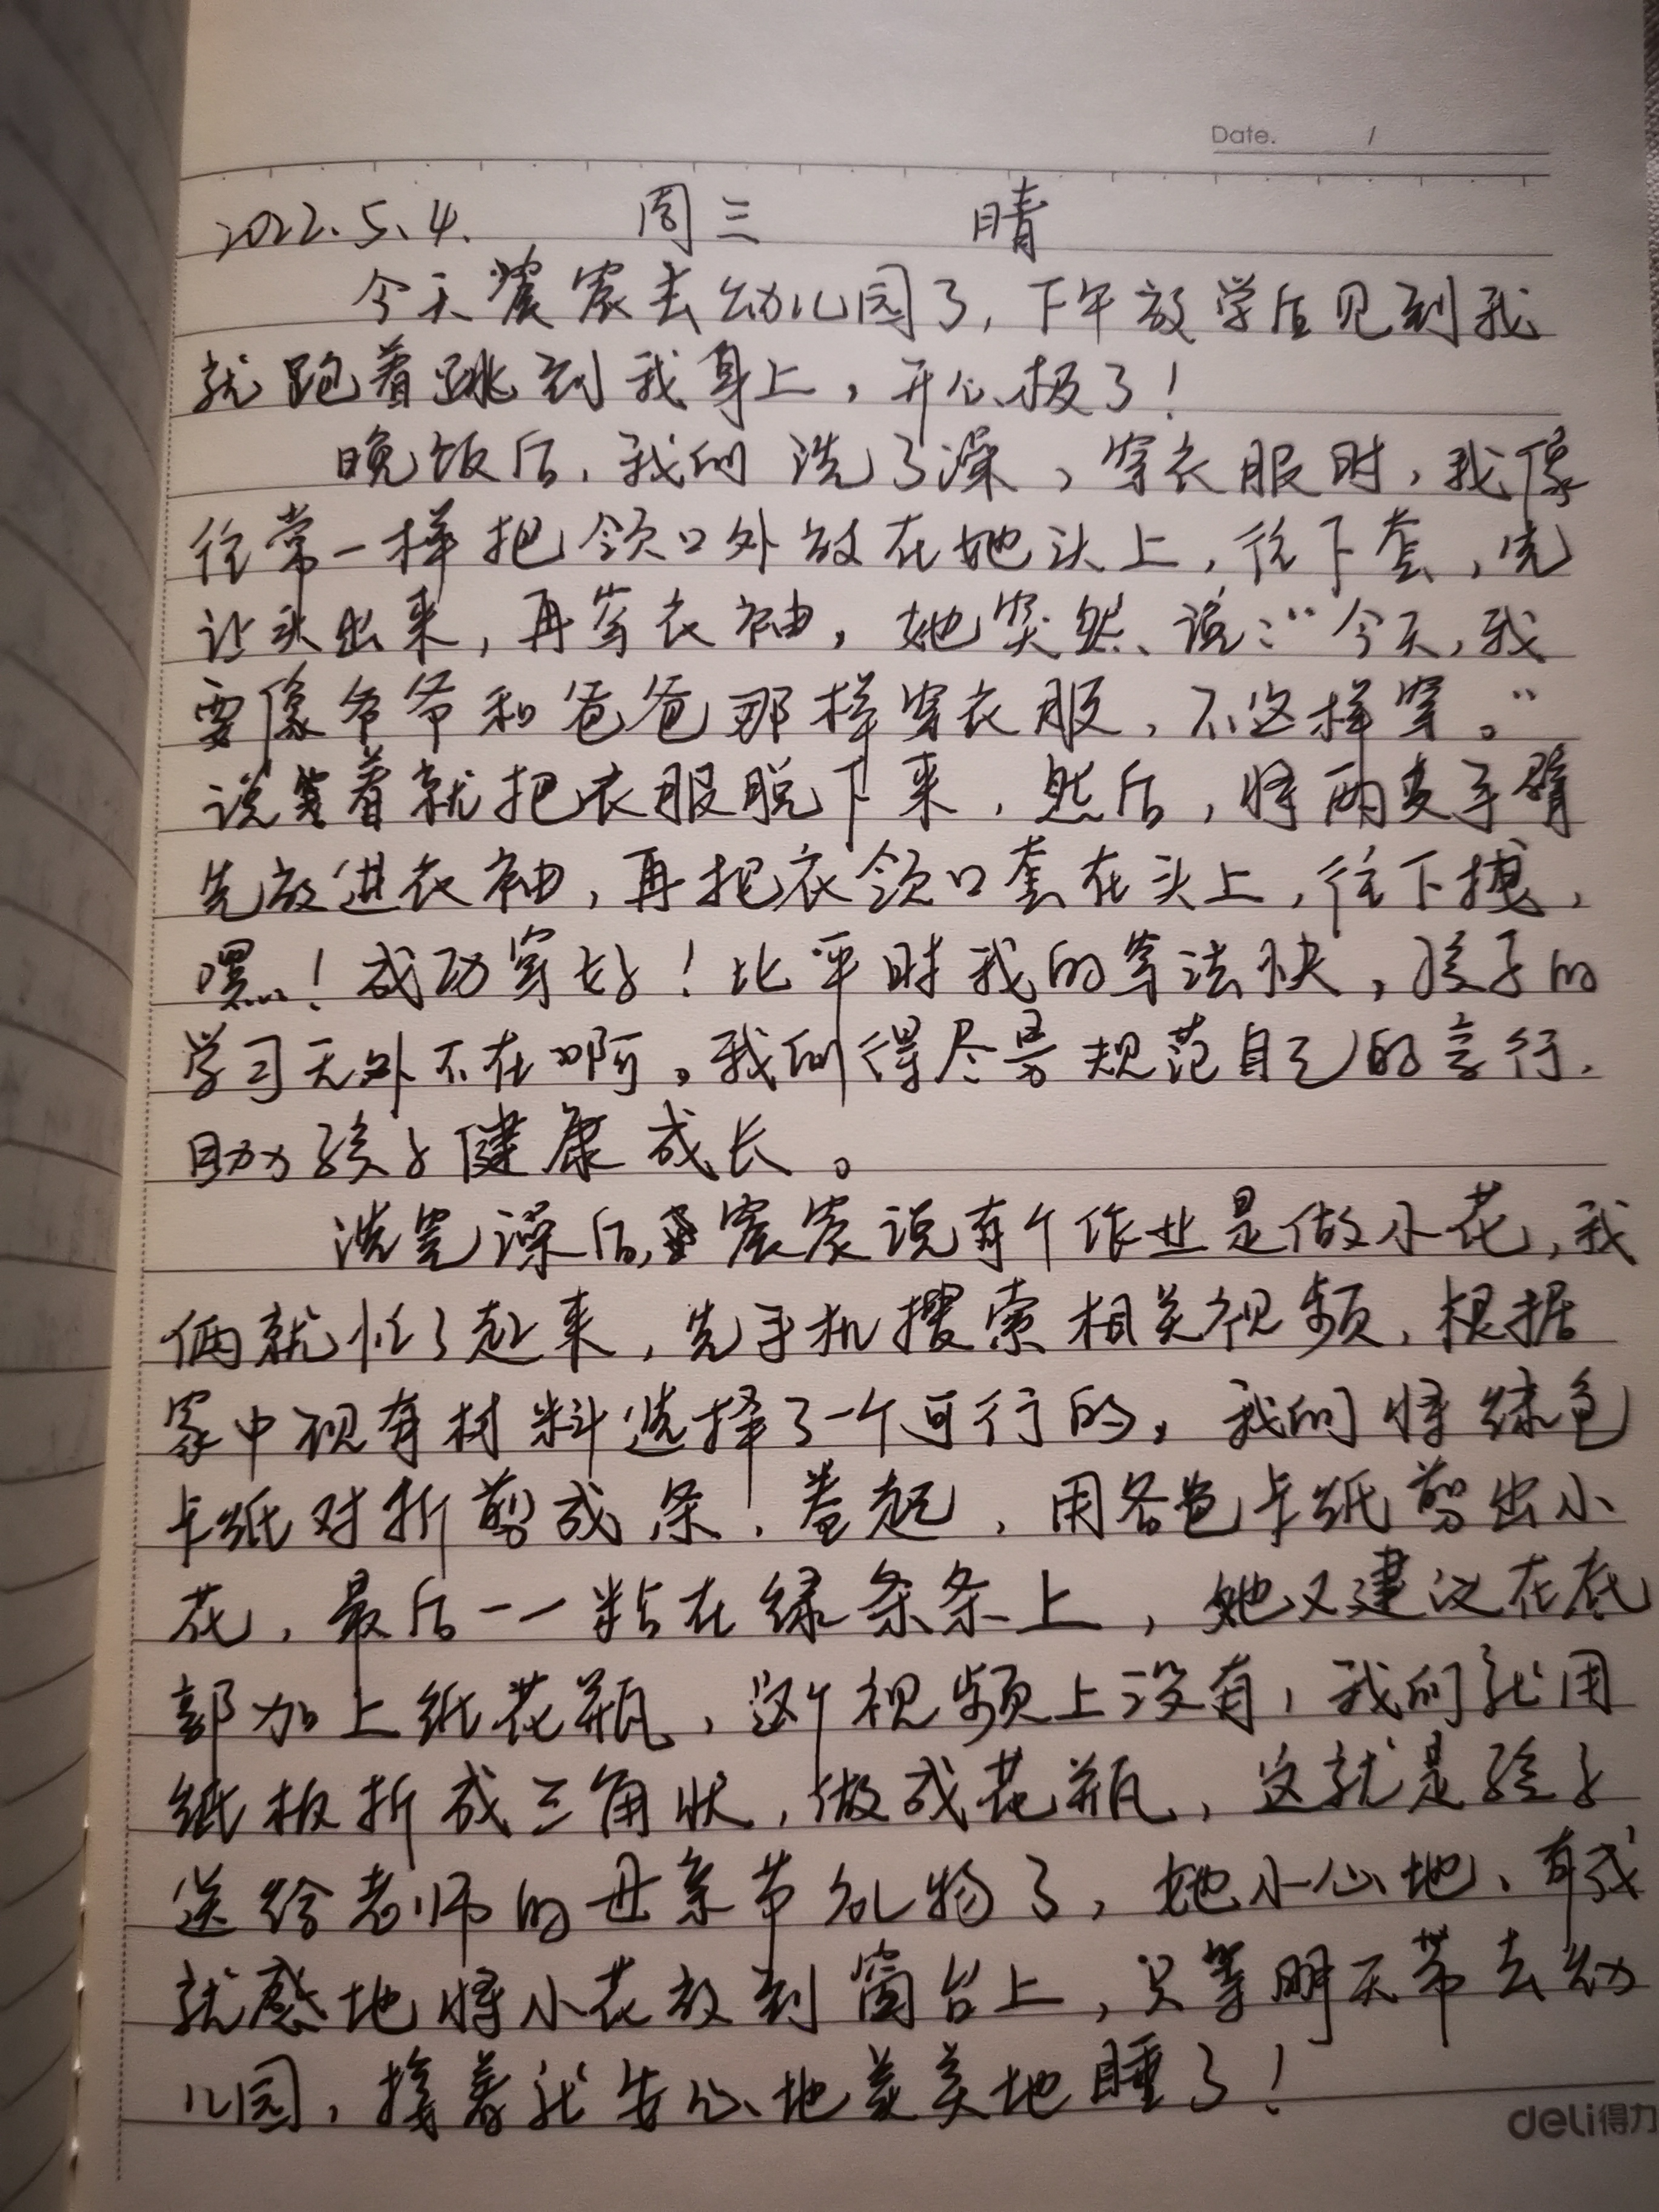 Date. /
2022.5.4. 周三 晴
今天宸宸去幼儿园了,下午放学后见到我
就跑着跳到我身上,开心极了!
晚饭后,我们洗了澡,穿衣服时,我像
往常一样把领口外放在她头上,往下套,先
让头出来,再穿衣袖,她突然说:“今天,我
要像爷爷和爸爸那样穿衣服,不这样穿。”
说着就把衣服脱下来,然后,将两支手臂
先放进衣袖,再把衣领口套在头上,往下拽,
嘿!成功穿好!比平时我的穿法快,孩子的
学习无处不在啊。我们得尽量规范自己的言行,
助孩子健康成长。
洗完澡后,宸宸说有个作业是做小花,我
俩就忙了起来,先手机搜索相关视频,根据
家中现有材料选择了一个可行的。我们将绿色
卡纸对折剪成条,卷起,用各色卡纸剪出小
花,最后一一粘在绿条条上,她又建议在底
部加上纸花瓶,这个视频上没有,我们就用
纸板折成三角状,做成花瓶,这就是孩子
送给老师的母亲节礼物了,她小心地、有成
就感地将小花放到窗台上,只等明天带去幼
儿园,接着就安心地美美地睡了!
deli得力